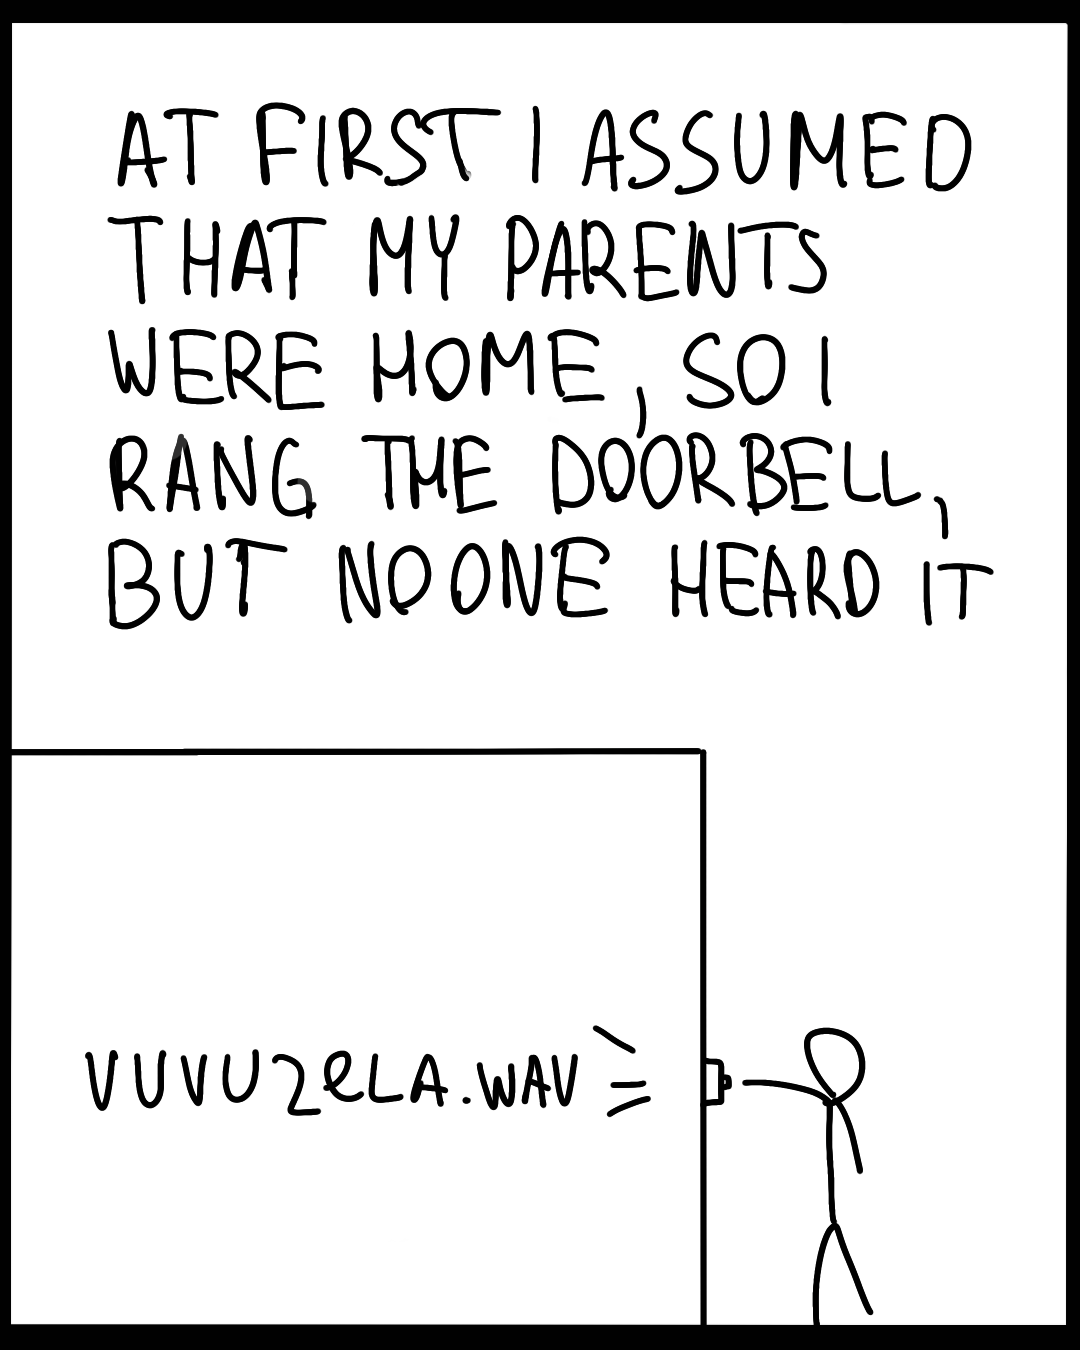 AT FIRST I ASSUMED
THAT MY PARENTS
WERE HOME, SO I
RANG THE DOORBELL,
BUT NOONE HEARD IT
VUVUZeLA.WAV